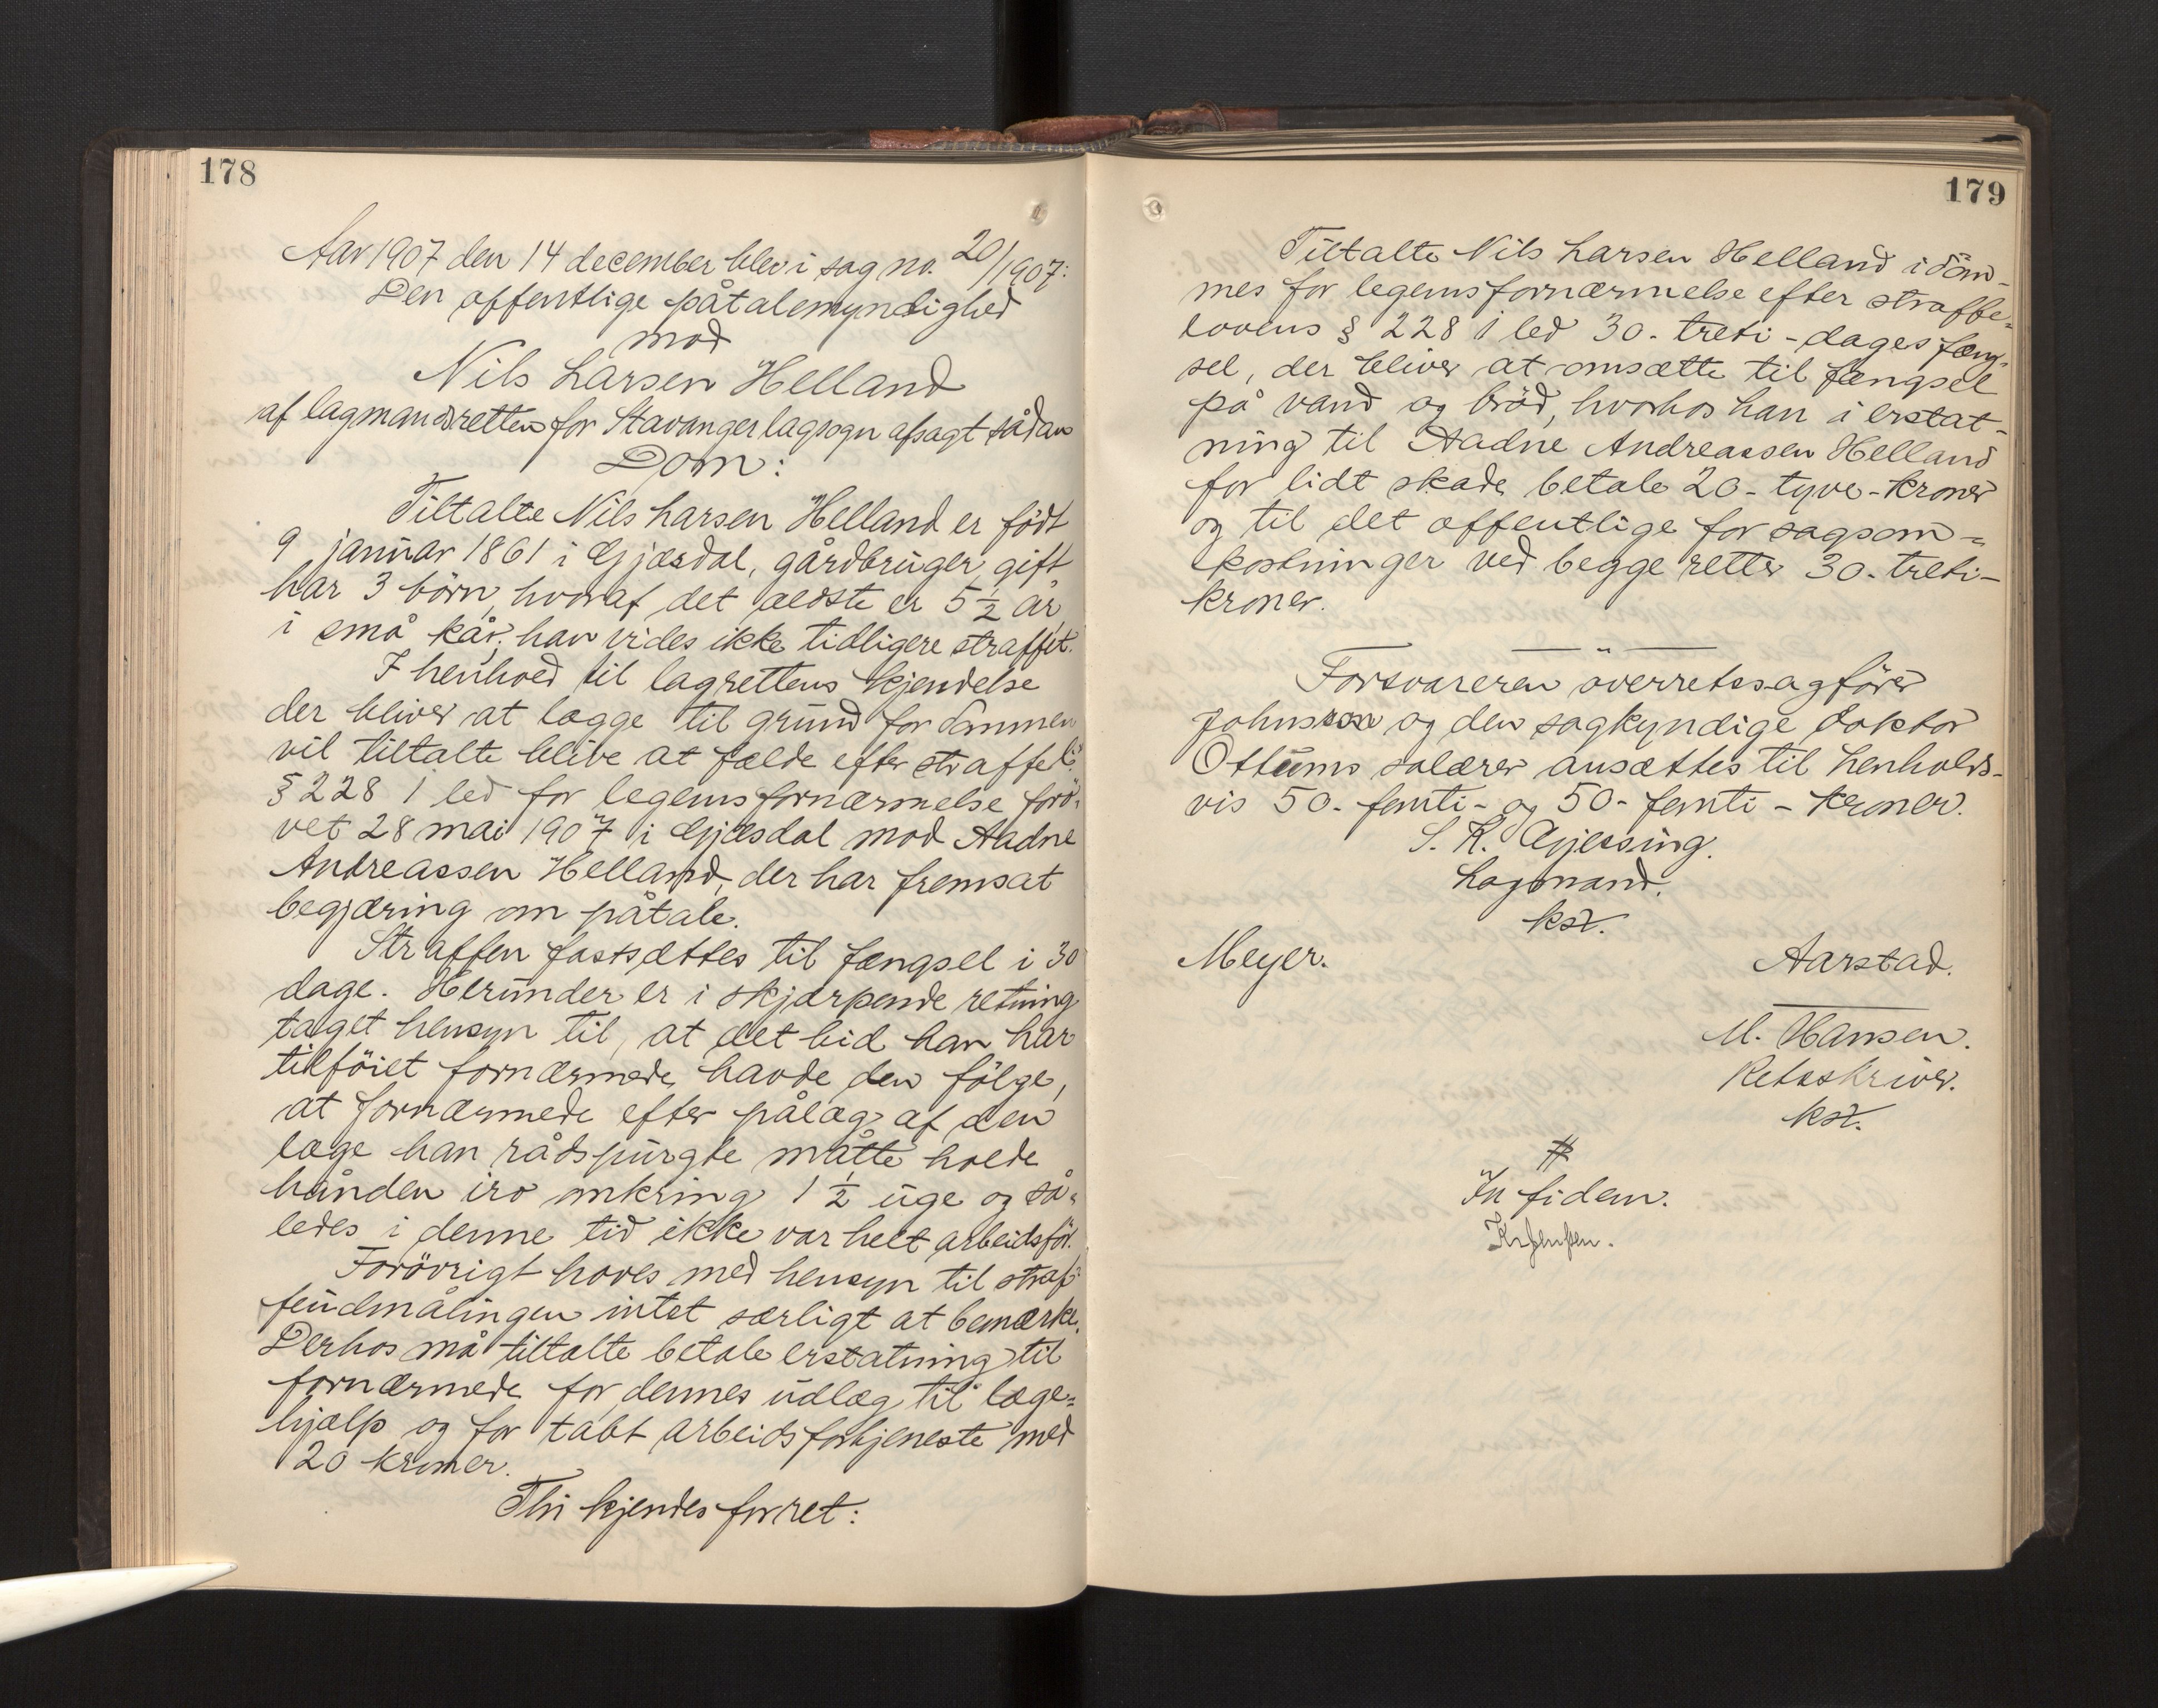 178
Aar 1907 den 14 december blev i sag no. 20/1907:
Den offentlige påtalemyndighed
mod
Nils Larsen Helland
af lagmandsretten for Stavanger lagsogn afsagt sådan
Dom:
Tiltalte Nils Larsen Helland er födt
9 januar 1861 i Gjæsdal, gårdbruger, gift
har 3 börn, hvoraf det ældste er 5 1/2 år,
i små kår; han vides ikke tidligere straffet.
I henhold til lagrettens kjendelse
der bliver at lægge til grund for dommen
vil tiltalte blive at fælde efter straffel.s
§ 228 1 led for legemsfornærmelse forö-
vet 28 mai 1907 i Gjæsdal mod Aadne
Andreassen Helland, der har fremsat
begjæring om påtale.
Straffen fastsættes til fængsel i 30
dage. Herunder er i skjærpende retning
taget hensyn til, at det bid han har
tilföiet fornærmede, havde den fölge,
at fornærmede efter pålæg af den
læge han rådspurgte måtte holde
hånden i ro omkring 1 1/2 uge og så-
ledes i denne tid ikke var helt arbeidsför.
Forövrigt haves med hensyn til straf-
feudmålingen intet særligt at bemærke.
Derhos må tiltalte betale erstatning til
fornærmede for dennes udlæg til læge=
hjælp og for tabt arbeidsfortjeneste med
20 kroner.
Thi kjendes for ret:
179
Tiltalte Nils Larsen Helland idöm-
mes for legemsfornærmelse efter straffe=
lovens § 228 1 led 30 - treti - dages fæng-
sel, der bliver at omsætte til fængsel
på vand og bröd, hvorhos han i erstat-
ning til Aadne Andreassen Helland
for lidt skade betale 20 - tyve - kroner
og til det offentlige for sagsom=
kostninger ved begge retter 30 - treti -
kroner.
Forsvareren overretssagförer
Johnson og den sagkyndige doktor
Ottums salærer ansættes til henholds-
vis 50 - femti - og 50 - femti - kroner.
S. K. Gjessing.
Lagmand.
kst.
Meyer. Aarstad.
M. Hansen.
Retsskriver.
kst.
In fidem.